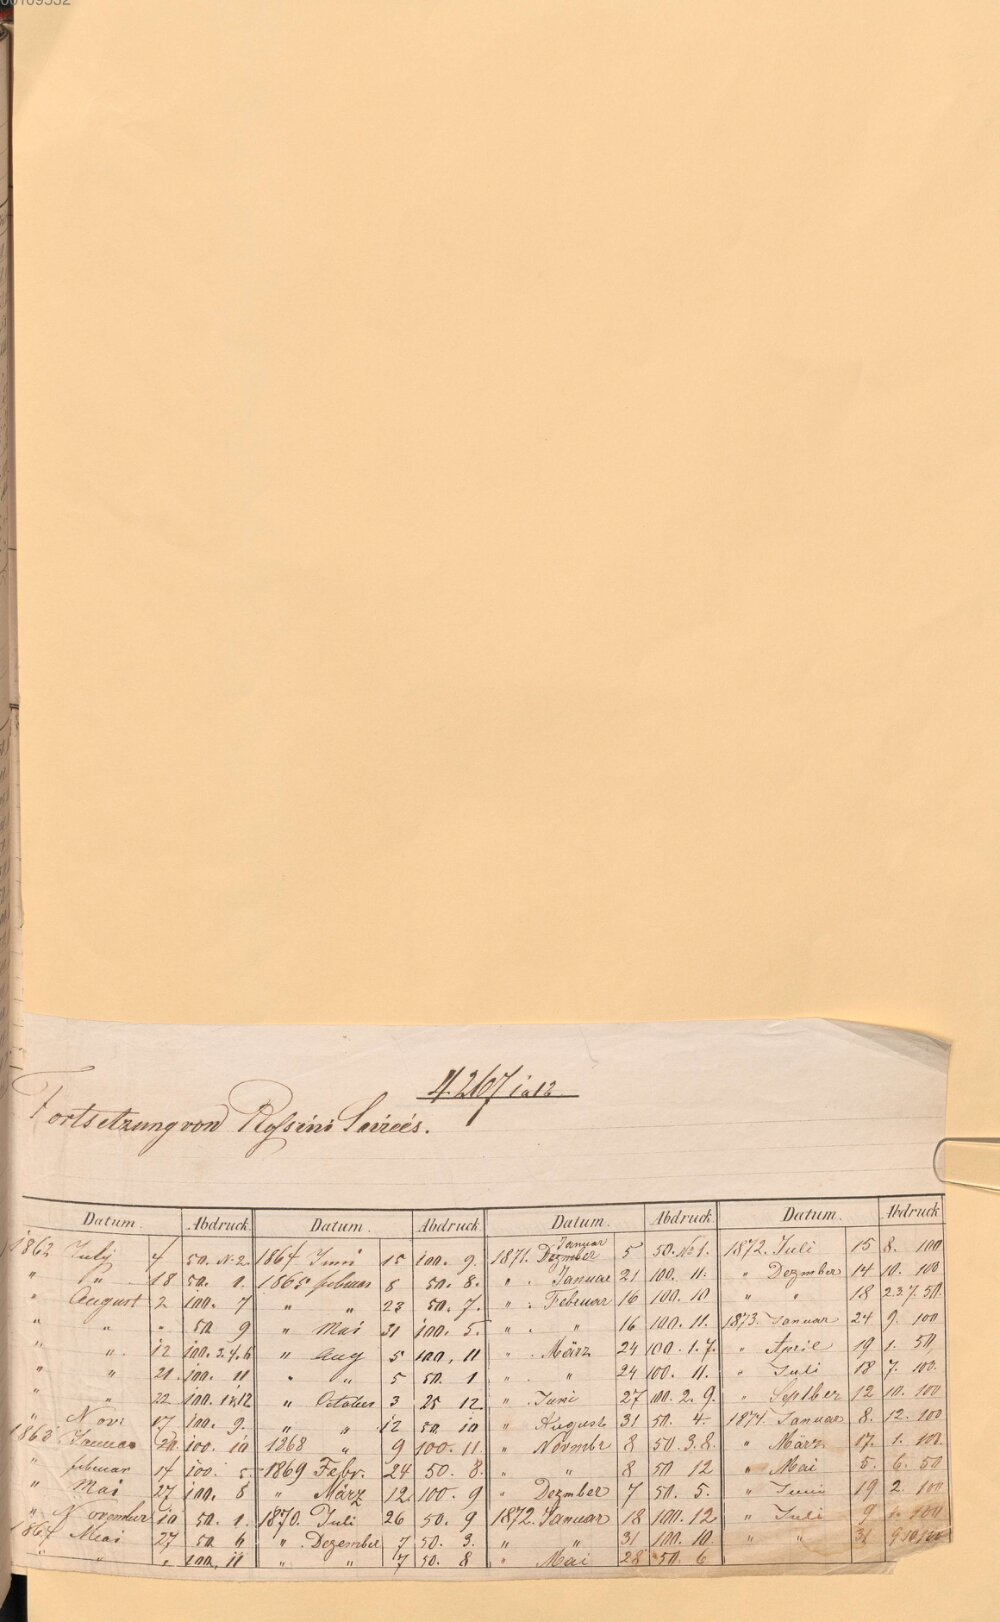 4267 1a12
Fortsetzung von Rossini Soireés.
Datum. Abdruck. Datum. Abdruck. Datum. Abdruck. Datum. Abdruck.
1862 July 4 50. N. 2. 1864 Juni 15 100. 9. 1871. Januar 5 50. No 1. 1872. Juli 15 8. 100
" " 18 50. 1. 1865 februar 8 50. 8. " . Januar 21 100. 11. " Dezmber 14 10. 100
" August 2 100. 7 " " 23 50. 7. " . Februar 16 100. 10 " " 18 2.3.7. 50.
" " " 50 9 " Mai 31 100. 5. " . " 16 100. 11. 1873. Januar 24 9. 100
" " 12 100. 3.4.6 " Aug 5 100. 11 " . März 24 100. 1.7. " April 19 1. 50,
" " 21. 100. 11 " " 5 50. 1 " . " 24 100. 11. " Juli 18 7. 100.
" " 22 100. 1.12 " October 3 25 12. " . Juni 27 100. 2. 9. " Septber 12 10. 100
" Novr 17 100. 9. " " 12 50 10 " August 31 50. 4. 1874. Januar 8. 12. 100
1863. Januar 20. 100. 10 1868 " 9 100. 11. " Novmbr 8 50. 3.8. " März 17. 1. 100.
" februar 14 100. 5. 1869 Febr. 24 50. 8. " " 8 50 12 " Mai 5. 6. 50
" Mai 27 100. 8 " März 12 100. 9 " Dezmber 7 50. 5. " Juni 19 2. 100
" November 10 50. 1. 1870. Juli 26 50. 9 1872. Januar 18 100. 12 " Juli 9 1. 100
1864 Mai 27 50 6 " . Dezember 7 50. 3. " " 31 100. 10. " " 31
" " " 100. 11 " " 7 50. 8 " Mai 28 50. 6